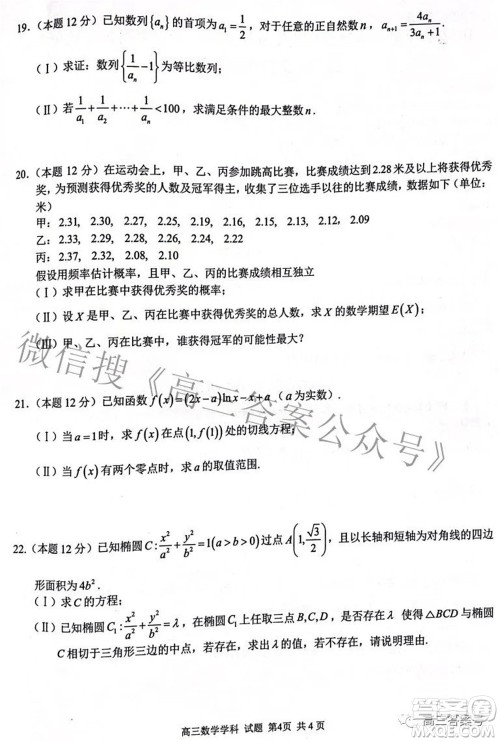 19.(本题12分)已知数列{aₙ}的首项为a₁=1/2,对于任意的正自然数n,aₙ₊₁=4aₙ/(3aₙ+1).
(Ⅰ)求证:数列{1/aₙ-1}为等比数列;
(Ⅱ)若1/a₁+1/a₂+⋯+1/aₙ<100,求满足条件的最大整数n.
20.(本题12分)在运动会上,甲、乙、丙参加跳高比赛,比赛成绩达到2.28米及以上将获得优秀
奖,为预测获得优秀奖的人数及冠军得主,收集了三位选手以往的比赛成绩,数据如下(单位:
米)
甲:2.31, 2.30, 2.27, 2.25, 2.20, 2.19, 2.15, 2.11, 2.12, 2.09
乙:2.33, 2.21, 2.29, 2.18, 2.16, 2.20
丙:2.32, 2.08, 2.20, 2.10
假设用频率估计概率,且甲、乙、丙的比赛成绩相互独立
(Ⅰ)求甲在比赛中获得优秀奖的概率;
(Ⅱ)设X是甲、乙、丙在比赛中获得优秀奖的总人数,求X的数学期望E(X);
(Ⅲ)甲、乙、丙在比赛中,谁获得冠军的可能性最大?
21.(本题12分)已知函数f(x)=(2x-a)lnx-x+a(a为实数).
(Ⅰ)当a=1时,求f(x)在点(1,f(1))处的切线方程;
(Ⅱ)当f(x)有两个零点时,求a的取值范围.
22.(本题12分)已知椭圆C:x²/a²+y²/b²=1(a>b>0)过点A(1,√3/2),且以长轴和短轴为对角线的四边
形面积为4b².
(Ⅰ)求C的方程;
(Ⅱ)已知椭圆C₁:x²/a²+y²/b²=λ,在椭圆C₁上任取三点B,C,D,是否存在λ 使得△BCD与椭圆
C相切于三角形三边的中点,若存在,求出λ的值,若不存在,请说明理由.
高三数学学科 试题 第4页 共4页
微信搜《高三答案公众号》
高三答案号